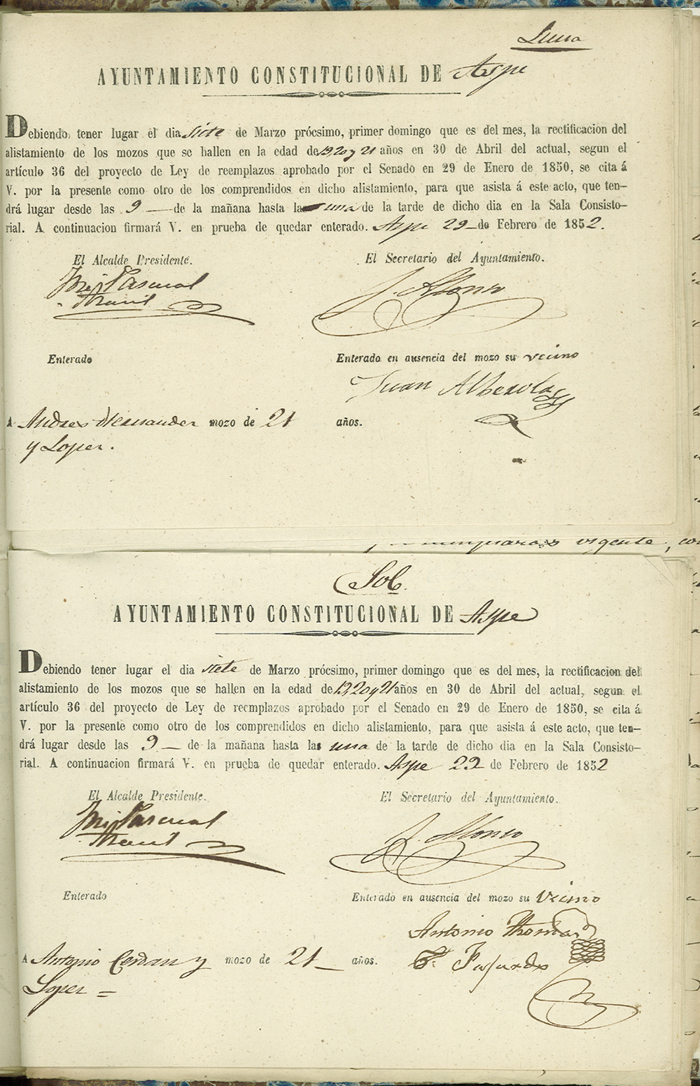 Luna
AYUNTAMIENTO CONSTITUCIONAL DE Aspe
Debiendo tener lugar el dia siete de Marzo prócsimo, primer domingo que es del mes, la rectificacion del
alistamiento de los mozos que se hallen en la edad de 19 20 y 21 años en 30 de Abril del actual, segun el
artículo 36 del proyecto de Ley de reemplazos aprobado por el Senado en 29 de Enero de 1850, se cita á
V. por la presente como otro de los comprendidos en dicho alistamiento, para que asista á este acto, que ten-
drá lugar desde las 9 de la mañana hasta la una de la tarde de dicho dia en la Sala Consisto-
rial. A continuacion firmará V. en prueba de quedar enterado. Aspe 29 de Febrero de 1852.
El Alcalde Presidente.
El Secretario del Ayuntamiento.
Pascual
J. Alonso
Enterado
Enterado en ausencia del mozo su vecino
Juan Alberola
A Andres Hernandez mozo de 21 años.
y Lopez.
Sol
AYUNTAMIENTO CONSTITUCIONAL DE Aspe
Debiendo tener lugar el dia siete de Marzo prócsimo, primer domingo que es del mes, la rectificacion del
alistamiento de los mozos que se hallen en la edad de 19 20 y 21 años en 30 de Abril del actual, segun el
artículo 36 del proyecto de Ley de reemplazos aprobado por el Senado en 29 de Enero de 1850, se cita á
V. por la presente como otro de los comprendidos en dicho alistamiento, para que asista á este acto, que ten-
drá lugar desde las 9 de la mañana hasta las una de la tarde de dicho dia en la Sala Consisto-
rial. A continuacion firmará V. en prueba de quedar enterado. Aspe 22 de Febrero de 1852
El Alcalde Presidente.
El Secretario del Ayuntamiento.
Pascual
J. Alonso
Enterado
Enterado en ausencia del mozo su vecino
Antonio
Fajardo
A Antonio Cerdan y mozo de 21 años.
Lopez